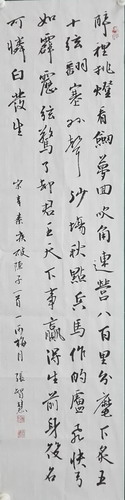 醉裡挑燈看劍夢回吹角連營八百里分麾下炙五
十弦翻塞外聲沙場秋點兵馬作的盧飛快弓
如霹靂弦驚了卻君王天下事贏得生前身後名
可憐白發生
宋辛棄疾破陣子
張智慧